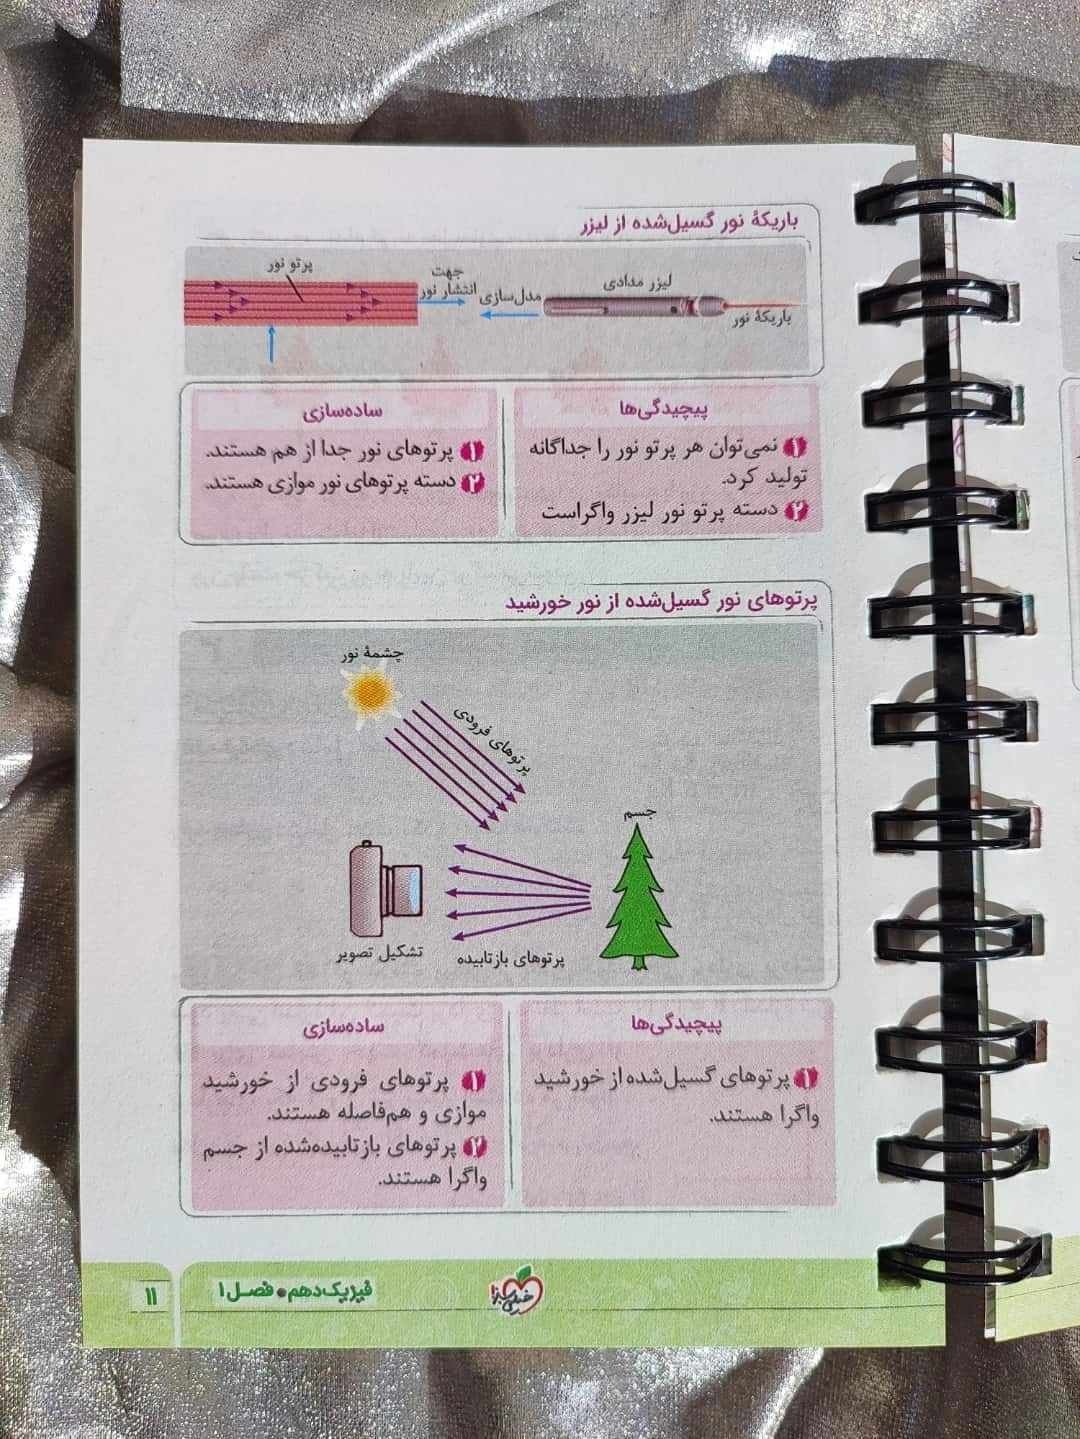 باریکهٔ نور گسیل‌شده از لیزر
لیزر مدادی
باریکهٔ نور
مدل‌سازی
جهت
انتشار نور
پرتو نور
پیچیدگی‌ها
۱ نمی‌توان هر پرتو نور را جداگانه
تولید کرد.
۲ دسته پرتو نور لیزر واگراست
ساده‌سازی
۱ پرتوهای نور جدا از هم هستند.
۲ دسته پرتوهای نور موازی هستند.
پرتوهای نور گسیل‌شده از نور خورشید
چشمهٔ نور
پرتوهای فرودی
جسم
پرتوهای بازتابیده
تشکیل تصویر
پیچیدگی‌ها
۱ پرتوهای گسیل‌شده از خورشید
واگرا هستند.
ساده‌سازی
۱ پرتوهای فرودی از خورشید
موازی و هم‌فاصله هستند.
۲ پرتوهای بازتابیده‌شده از جسم
واگرا هستند.
خیلی سبز
فیزیک دهم • فصل ۱
۱۱